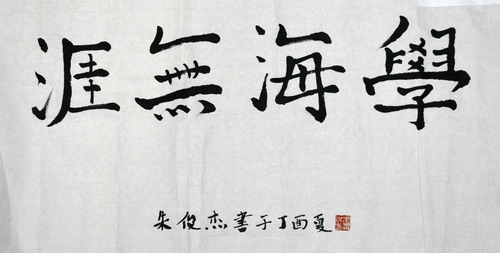 學海無涯
朱俊杰書于丁酉夏